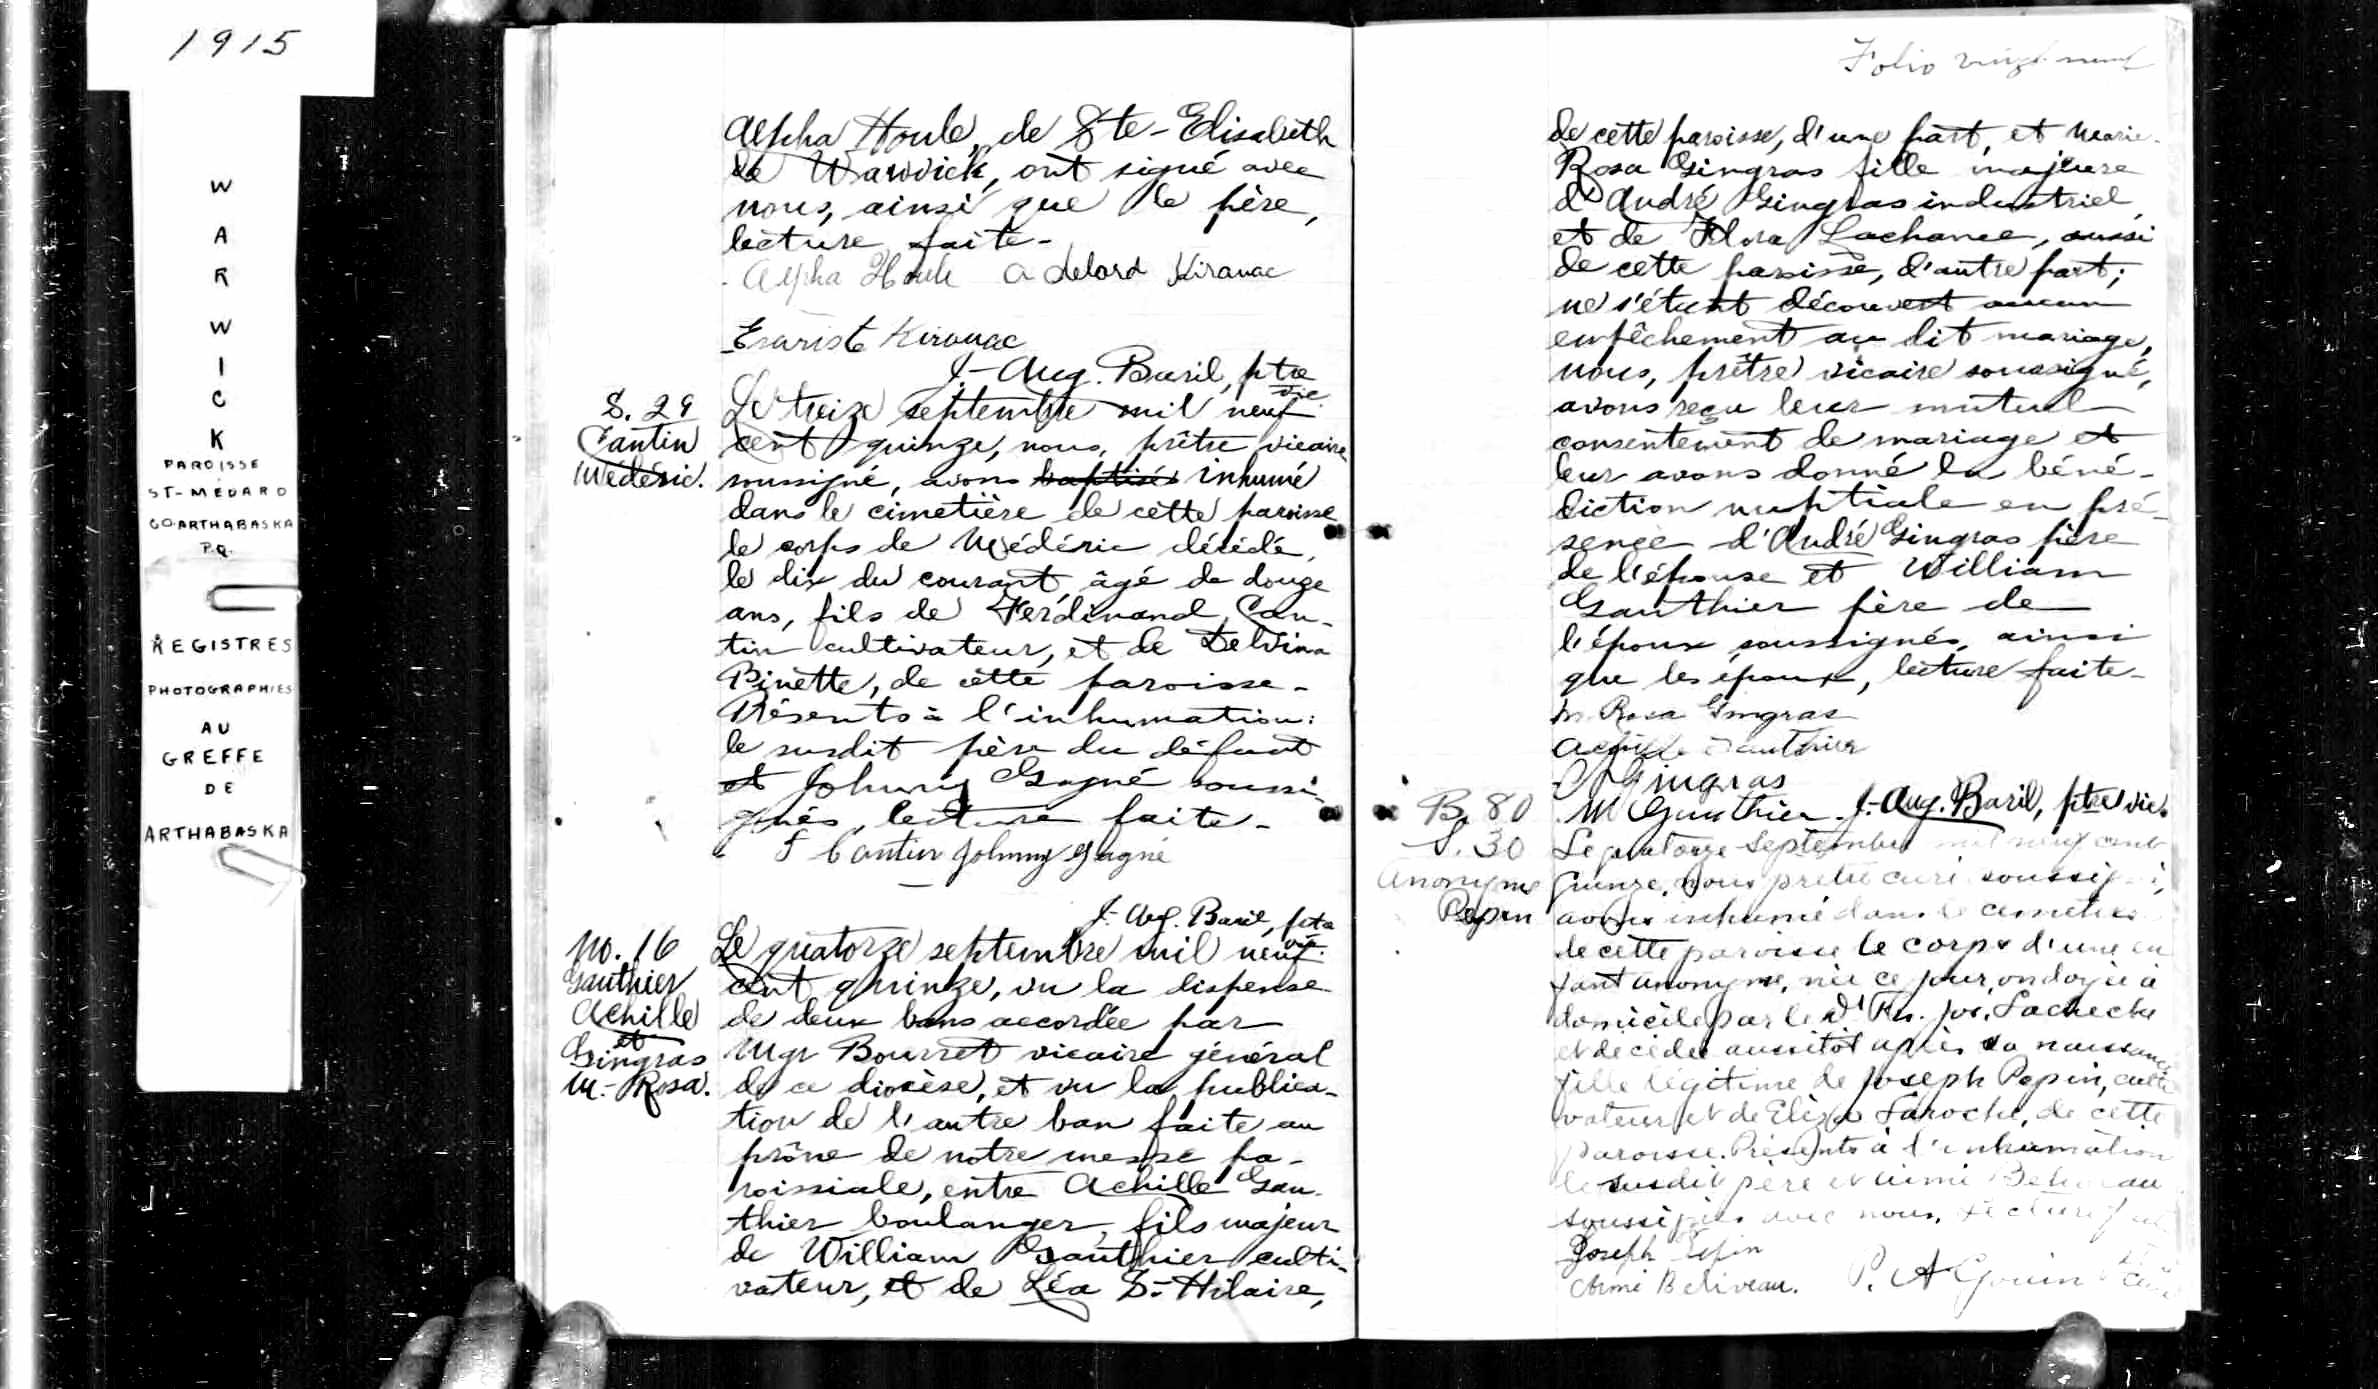 1915
WARWICK
PAROISSE
ST-MÉDARD
CO. ARTHABASKA
P.Q.
REGISTRES
PHOTOGRAPHIES
AU
GREFFE
DE
ARTHABASKA
Alpha Houle, de Ste-Elisabeth
de Warwick, ont signé avec
nous, ainsi que le père,
lecture faite-
Alpha Houle Adelard Kirouac
Evariste Kirouac
J-Aug. Baril, ptre
vic.
S. 29
Cantin
Médéric.
Le treize septembre mil neuf
cent quinze, nous, prêtre vicaire
soussigné, avons baptisé inhumé
dans le cimetière de cette paroisse
le corps de Médéric décédé,
le dix du courant, âgé de douze
ans, fils de Ferdinand Can-
tin cultivateur, et de Delvina
Pinette, de cette paroisse-
Présents à l'inhumation:
le susdit père du défunt
et Johnny Gagné soussi-
gnés, lecture faite-
F Cantin Johnny Gagné
J-Aug. Baril, ptre
vic.
M. 16
Gauthier
Achille
et
Gingras
M.-Rosa.
Le quatorze septembre mil neuf
cent quinze, vu la dispense
de deux bans accordée par
Mgr Bourret vicaire général
de ce diocèse, et vu la publica-
tion de l'autre ban faite au
prône de notre messe pa-
roissiale, entre Achille Gau-
thier boulanger, fils majeur
de William Gauthier culti-
vateur, et de Léa St-Hilaire,
Folio vingt neuf
de cette paroisse, d'une part, et Marie-
Rosa Gingras fille majeure
d'André Gingras industriel,
et de Flora Lachance, aussi
de cette paroisse, d'autre part;
ne s'étant découvert aucun
empêchement au dit mariage,
nous, prêtre vicaire soussigné,
avons reçu leur mutuel
consentement de mariage et
leur avons donné la béné-
diction nuptiale en pré-
sence d'André Gingras père
de l'épouse et William
Gauthier père de
l'époux soussignés, ainsi
que les époux, lecture faite-
M. Rosa Gingras
Achille Gauthier
A Gingras
W Gauthier J-Aug. Baril, ptre vic.
B. 80
S. 30
Anonyme
Pepin
Le quatorze septembre mil neuf cent
quinze, nous prêtre curé soussigné,
avons inhumé dans le cimetière
de cette paroisse le corps d'une en
fant anonyme, née ce jour, ondoyée à
domicile par le Dr Jos. Lacheche
et décédée aussitôt après sa naissance
fille légitime de Joseph Pepin, culti
vateur et de Eliza Laroche, de cette
paroisse. Présents à l'inhumation
le susdit père et Aimé Beliveau
soussignés avec nous. Lecture faite
Joseph Pepin
Aimé Beliveau. P. A Gouin